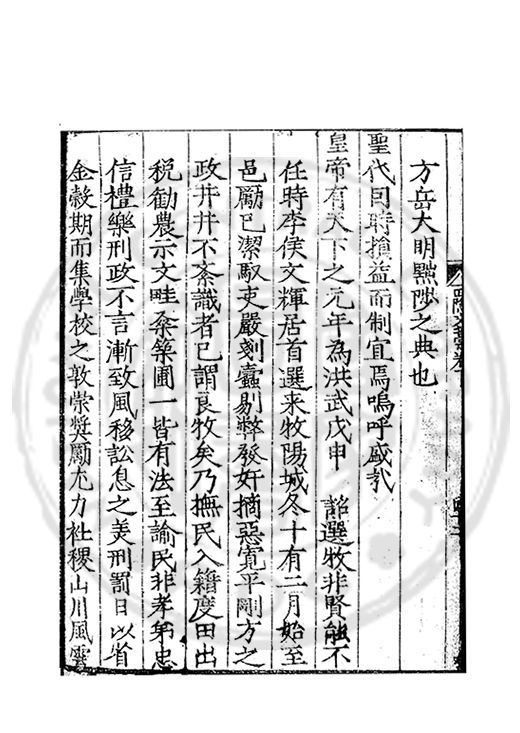 方岳大明黜陟之典也
聖代因時損益而制宜焉嗚呼盛哉
皇帝有天下之元年為洪武戊申　詔選牧非賢能不
任時李侯文輝居首選来牧陽城冬十有二月始至
邑勵己潔馭吏嚴剗蠹剔弊發奸擿惡寬平剛方之
政井井不紊識者已謂良牧矣乃撫民入籍度田出
稅勸農示文畦桑築圃一皆有法至諭民非孝弟忠
信禮樂刑政不言漸致風移訟息之美刑罰日以省
金糓期而集學校之敦崇奬勵尤力社稷山川風雲